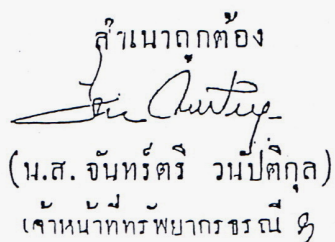 สำเนาถูกต้อง
(น.ส. จันทร์ตรี วนัปติกุล)
เจ้าหน้าที่ทรัพยากรธรณี 8